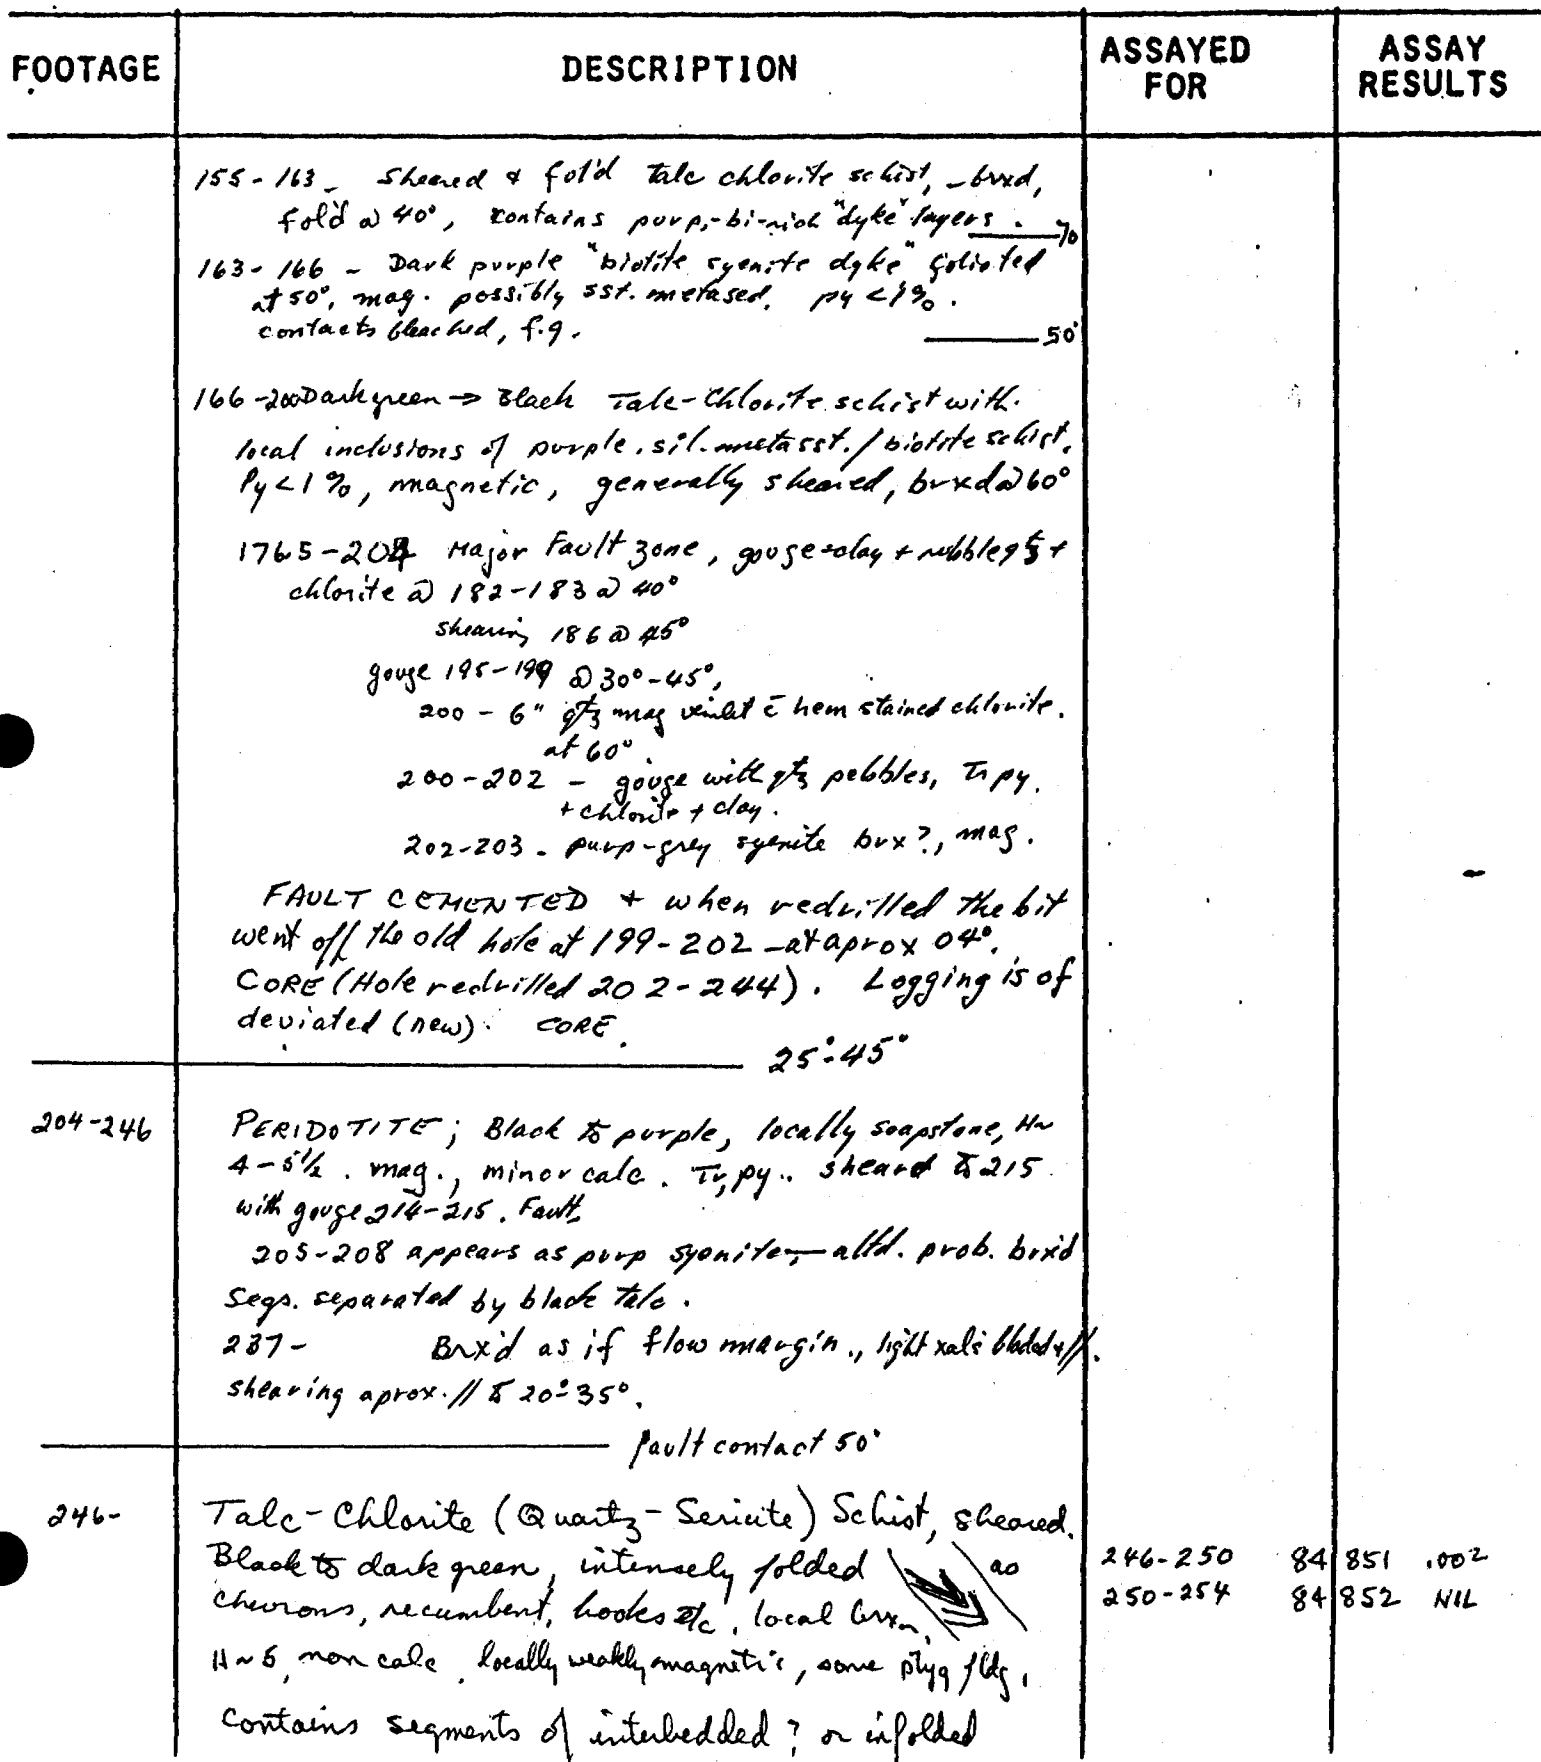 FOOTAGE DESCRIPTION ASSAYED FOR ASSAY RESULTS
155-163 - Sheared & fol'd Talc chlorite schist, - brxd,
fol'd @ 40°, contains purp,-bi-rich "dyke" layers.
70
163-166 - Dark purple "biotite syenite dyke" foliated
at 50°, mag. possibly sst. metased. py <1%.
contacts bleached, f.g.
50°
166-200 Dark green → Black Talc-Chlorite schist with
local inclusions of purple, sil. metasst./biotite schist.
Py<1%, magnetic, generally sheared, brxd@60°
176.5-204 Major Fault zone, gouge+clay + rubble qtz +
chlorite @ 182-183 @ 40°
shearing 186 @ 45°
gouge 195-199 @ 30°-45°,
200 - 6" qtz mag veinlet c̄ hem stained chlorite.
at 60°.
200-202 - gouge with qtz pebbles, Tr py.
+ chlorite + clay.
202-203 - purp-grey syenite brx?, mag.
FAULT CEMENTED + when redrilled the bit
went off the old hole at 199-202 - at aprox 04°.
CORE (Hole redrilled 202-244). Logging is of
deviated (new). CORE.
25°-45°
204-246 PERIDOTITE; Black to purple, locally soapstone, H~
4-5½. mag., minor calc. Tr, py.. sheard to 215
with gouge 214-215. Fault.
205-208 appears as purp syenite, - altd. prob. brxid
Segs. separated by black talc.
237- Brx'd as if flow margin., light xals bladed + //.
shearing aprox. // to 20°-35°.
fault contact 50°
246- Talc-Chlorite (Quartz-Sericite) Schist, sheared.
Black to dark green, intensely folded as 246-250 84851 .002
Chevrons, recumbent, hooks etc, local brxn, 250-254 84852 NIL
H~5, non calc, locally weakly magnetic, some ptyg fldg,
contains segments of interbedded? or infolded